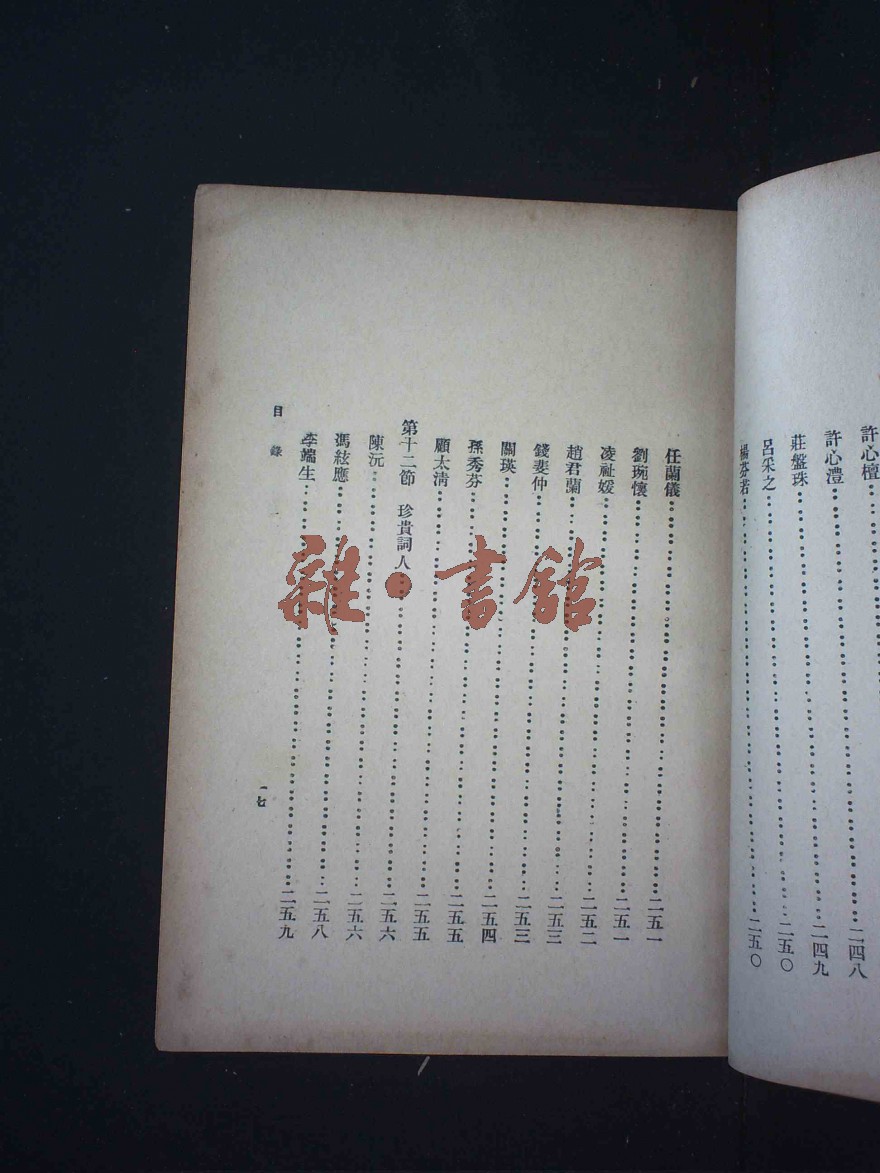 許心檀……二四八
許心澧……二四九
莊盤珠……二五〇
呂采之……二五〇
楊芬若……二五〇
任蘭儀……二五一
劉琬懷……二五一
凌祉媛……二五二
趙君蘭……二五三
錢斐仲……二五三
關瑛……二五四
孫秀芬……二五五
顧太清……二五五
第十二節 珍貴詞人……二五五
陳沅……二五六
馮絃應……二五八
李端生……二五九
目錄
一七
雜·書館